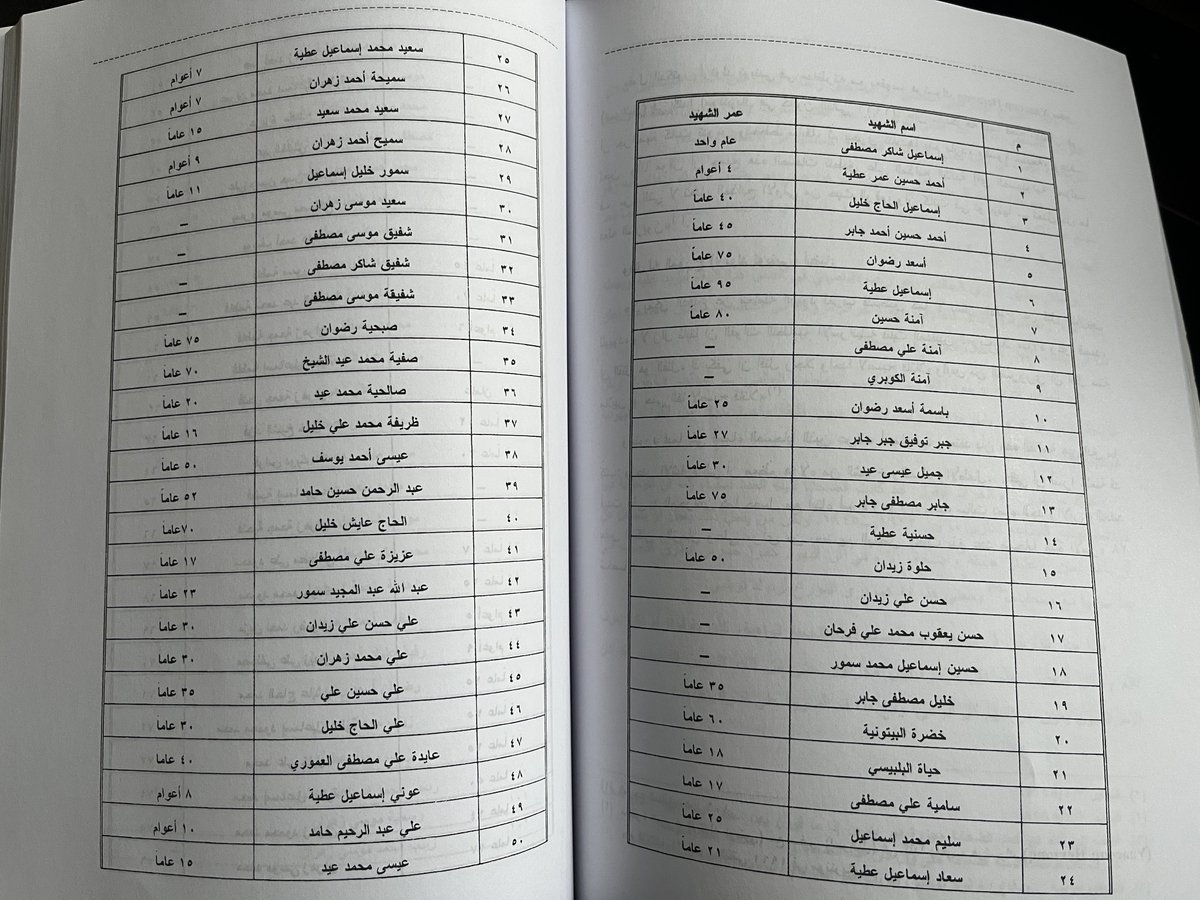 م اسم الشهيد عمر الشهيد
١ إسماعيل شاكر مصطفى عام واحد
٢ أحمد حسين عمر عطية ٤ أعوام
٣ إسماعيل الحاج خليل ٤٠ عاماً
٤ أحمد حسين أحمد جابر ٤٥ عاماً
٥ أسعد رضوان ٧٥ عاماً
٦ إسماعيل عطية ٩٥ عاماً
٧ آمنة حسين ٨٠ عاماً
٨ آمنة علي مصطفى –
٩ آمنة الكوبري –
١٠ باسمة أسعد رضوان ٢٥ عاماً
١١ جبر توفيق جبر جابر ٢٧ عاماً
١٢ جميل عيسى عيد ٣٠ عاماً
١٣ جابر مصطفى جابر ٧٥ عاماً
١٤ حسنية عطية –
١٥ حلوة زيدان ٥٠ عاماً
١٦ حسن علي زيدان –
١٧ حسن يعقوب محمد علي فرحان –
١٨ حسين إسماعيل محمد سمور –
١٩ خليل مصطفى جابر ٣٥ عاماً
٢٠ خضرة البيتونية ٦٠ عاماً
٢١ حياة البلبيسي ١٨ عاماً
٢٢ سامية علي مصطفى ١٧ عاماً
٢٣ سليم محمد إسماعيل ٢٥ عاماً
٢٤ سعاد إسماعيل عطية ٢١ عاماً
٢٥ سعيد محمد إسماعيل عطية ٧ أعوام
٢٦ سميحة أحمد زهران ٧ أعوام
٢٧ سعيد محمد سعيد ١٥ عاماً
٢٨ سميح أحمد زهران ٩ أعوام
٢٩ سمور خليل إسماعيل ١١ عاماً
٣٠ سعيد موسى زهران –
٣١ شفيق موسى مصطفى –
٣٢ شفيق شاكر مصطفى –
٣٣ شفيقة موسى مصطفى –
٣٤ صبحية رضوان ٧٥ عاماً
٣٥ صفية محمد عيد الشيخ ٧٠ عاماً
٣٦ صالحية محمد عيد ٢٠ عاماً
٣٧ ظريفة محمد علي خليل ١٦ عاماً
٣٨ عيسى أحمد يوسف ٥٠ عاماً
٣٩ عبد الرحمن حسين حامد ٥٢ عاماً
٤٠ الحاج عايش خليل ٧٠عاماً
٤١ عزيزة علي مصطفى ١٧ عاماً
٤٢ عبد الله عبد المجيد سمور ٢٣ عاماً
٤٣ علي حسن علي زيدان ٣٠ عاماً
٤٤ علي محمد زهران ٣٠ عاماً
٤٥ علي حسين علي ٣٥ عاماً
٤٦ علي الحاج خليل ٣٠ عاماً
٤٧ عايدة علي مصطفى العموري ٤٠ عاماً
٤٨ عوني إسماعيل عطية ٨ أعوام
٤٩ علي عبد الرحيم حامد ١٠ أعوام
٥٠ عيسى محمد عيد ١٥ عاماً